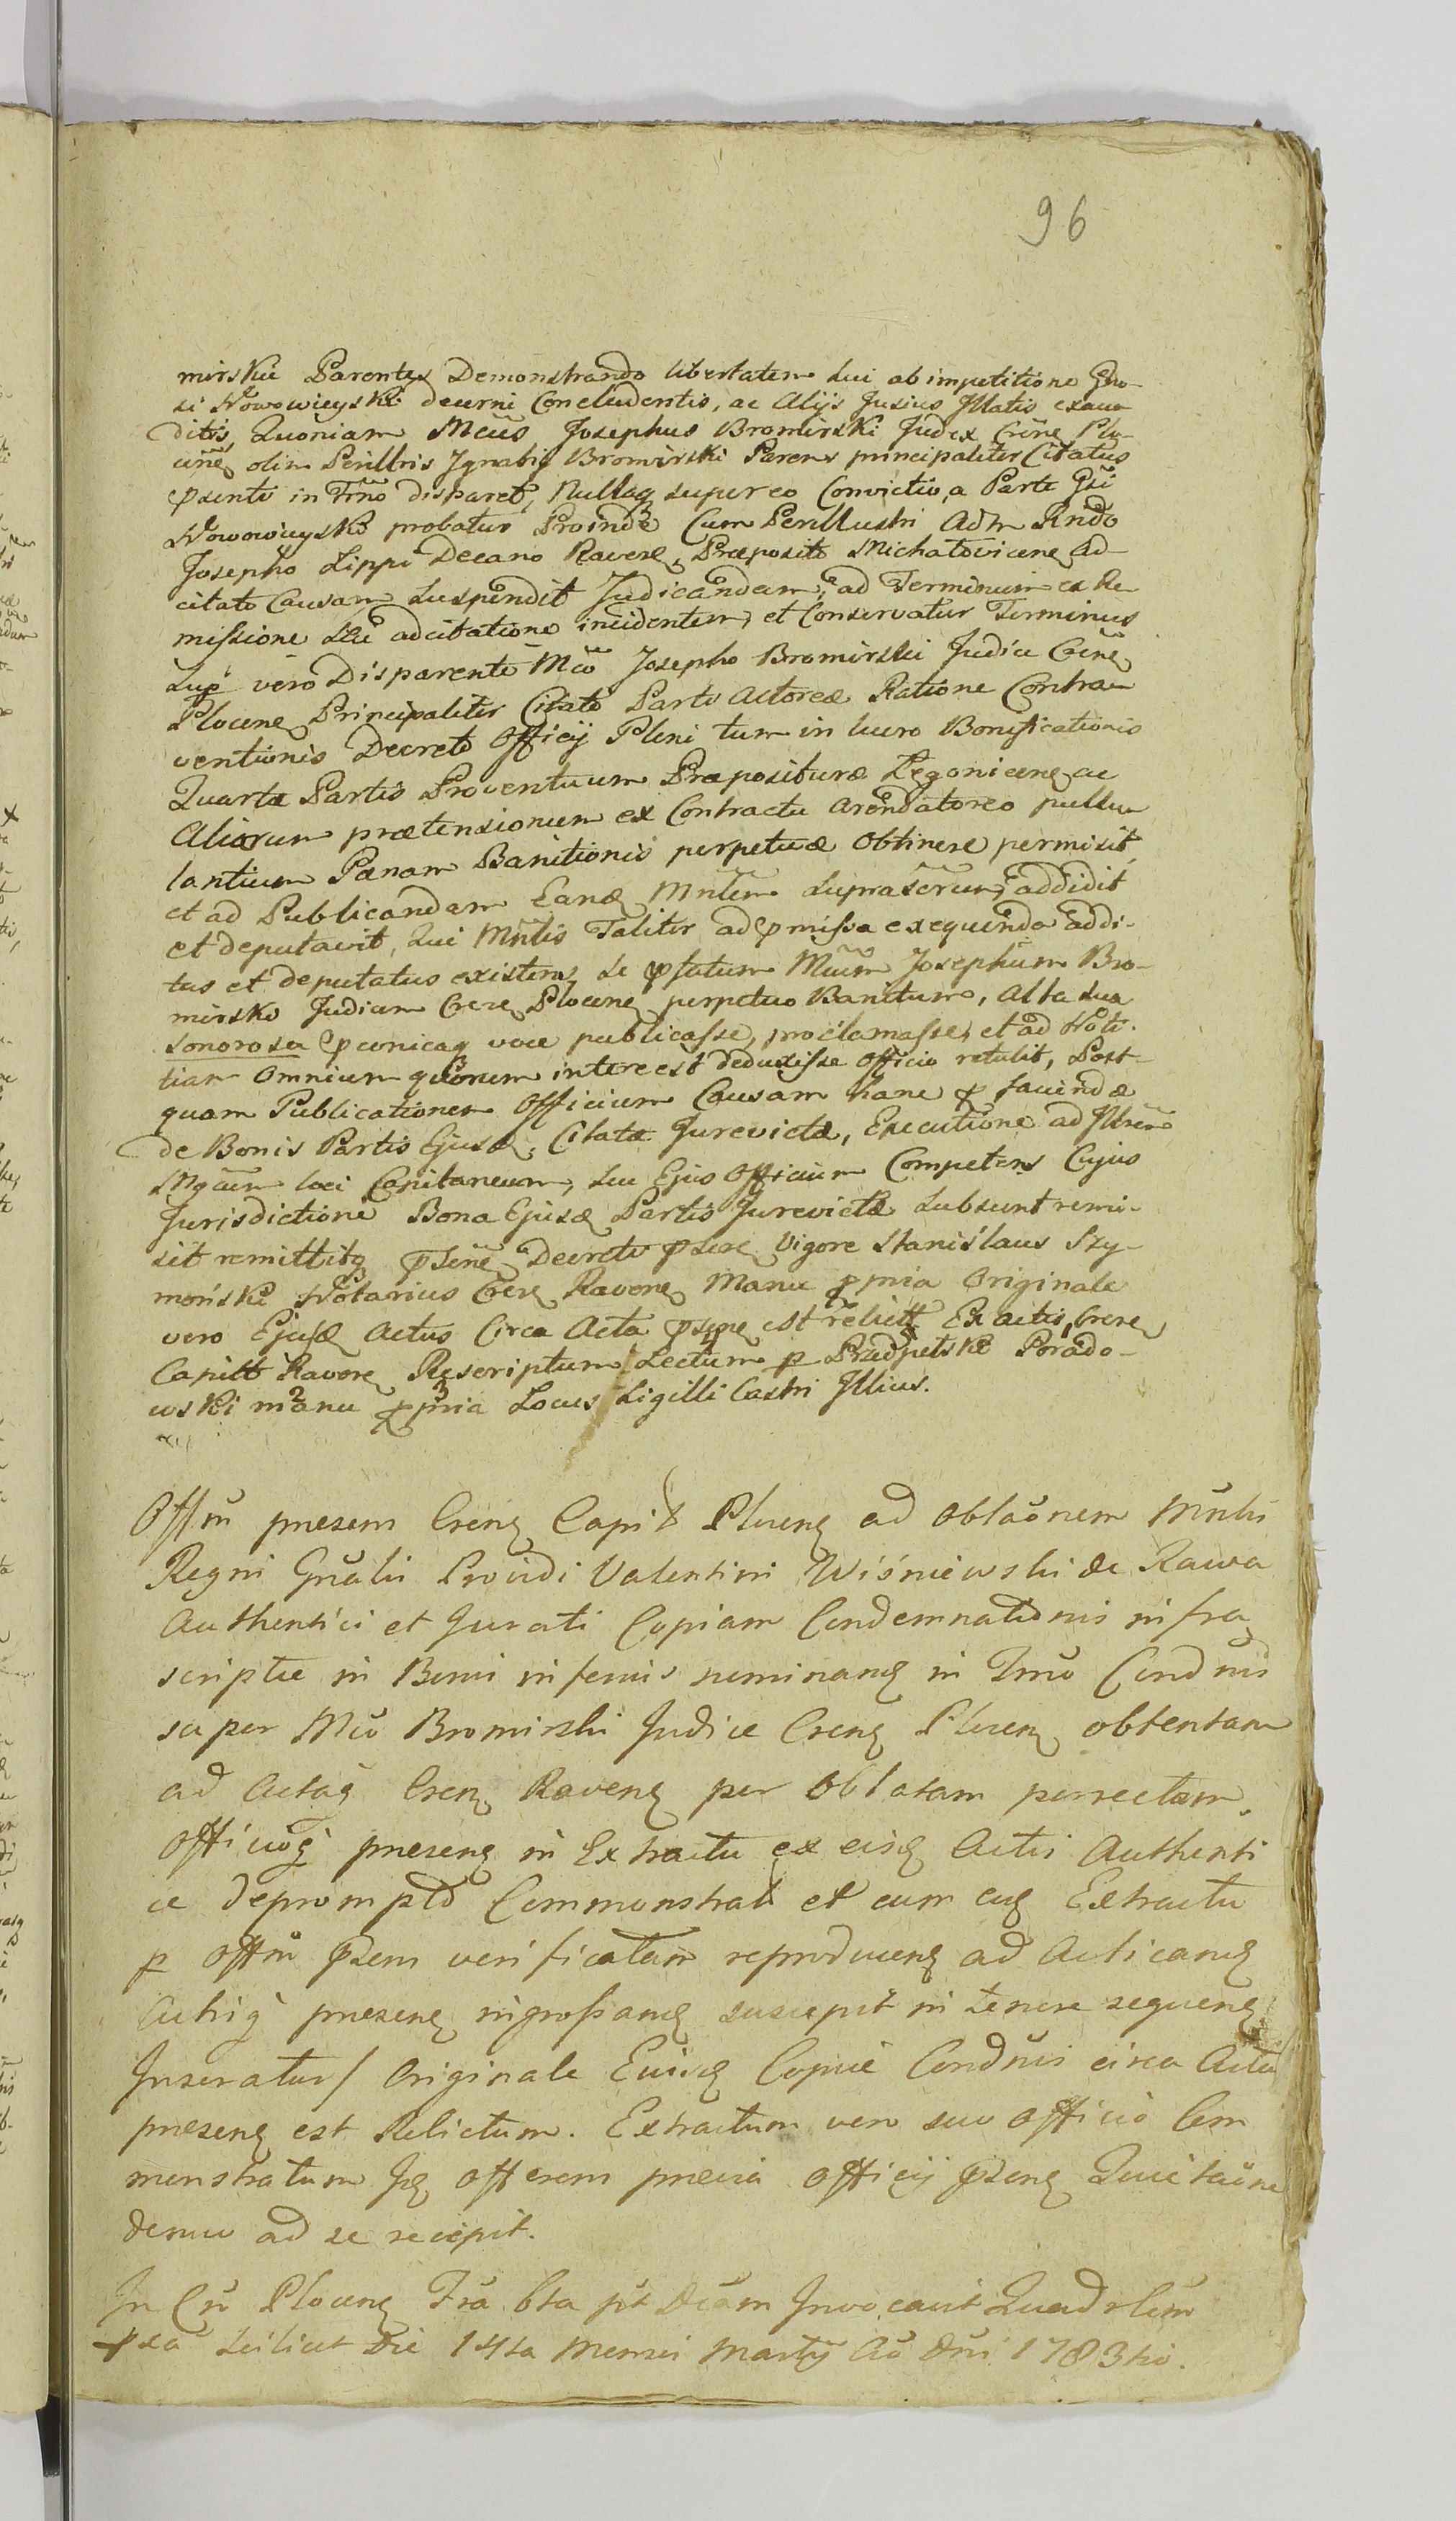 96
mirskii Parentes Demonstrando libertatem sui ab impetitione Gno-
si Nowowieyski decerni Concludentis, ac Alijs Jusius Jllatis exau-
ditis, Quoniam Mcus Josephus Bromirski Judex Crene Plo-
cine olim Perillris Jgnatij Bromirski Parens principaliter Citatus
psenti in Trno disparet, Nullaq super eo Convictio, a Parte Gsi
Nowowieyski probatur Proinde Cum Perillustri Adm Rndo
Josepho Lippi Decano Ravens, Præposito Michałovicene ad-
citato Causam Suspendit Judicandam, ad Terminum ex Re-
missione seu adcitatione incidentem, et Conservatur Terminus
Supe vero Disparenti Mco Josepho Bromirski Judice Crene
Plocene Principaliter Citato Parti Actoreæ Ratione Contra-
ventionis Decreto Officij Pleni tum in lucro Bonificationis
Quartæ Partis Proventuum Præposituræ Zegoniceneq ac
Aliorum prætensionum ex Contractu Arendatoreo pullu-
lantium Pænam Banitionis perpetuæ Obtinere permisit
et ad Publicandam Eanq Mnlem Suprascrum, addidit
et deputavit, Qui Mnlis Taliter ad pmissa exequenda addi-
tus et deputatus existens, se pfatum Mcum Josephum Bro-
mirski Judicem Crere Plocene perpetuo Banitum, Alta sua
Sonorosa pconicaq voce publicasse, proclamasse, et ad Noti-
tiam Omnium quorum interest deduxisse Officio retulit, Post
quam Publicationem Officium Causam hanc p facienda
de Bonis Partis Ejusq Citatæ Jurevictæ, Executione ad Jllrem
Mgcum loci Capitaneum, seu Ejus Officium Competens Cujus
Jurisdictioni Bona Ejusq Partis Jurevictæ Subsunt remi-
sit remittitq psene Decreti psere Vigore Stanisłaus Szy-
moński Notarius Crere Ravene Manu ppria Originale
vero Ejusq Actus Circa Acta psene est relictt Ex actis Crere
Capitt Ravene Rescriptum Lectum p Przedpełski Porado-
wski manu ppria Locus Sigilli Castri Jllius.
Offm præsens Creneq Capit Ploceneq ad Oblaonem Mnlis
Regni Gnalis Providi Valentini Wiśniewski de Rawa
Authentici et Jurati Copiam Condemnationis infra
scriptæ in Bonis inferius nominanq in Trno Condnis
super Mco Bromirski Judice Creneq Ploceneq obtentam
ad Actaq Creneq Raveneq per Oblatam porrectam,
Officioq præseneq in Extractu ex eisq Actis Authenti
ce deprompto Commonstrat et cum eoq Extractu
p Offm psens verificatam reproduceneq ad Acticanq
Actisq præseneq ingrossanq suscepit in tenore sequeneq
Jnseratur / Originale Eiusq Copiæ Condnis circa Acta
præseneq est Relictum. Extractum vero suo Officio Com
monstratum Jq Offerens prævia Officij pseneq Quietaone
denuo ad se recepit.
In Cro Ploceneq Fria 6ta pt Dcam Jnvocavit Quadrlem
pxa Scilicet Die 14ta Mensis Martij Ao Dni 1783tio.